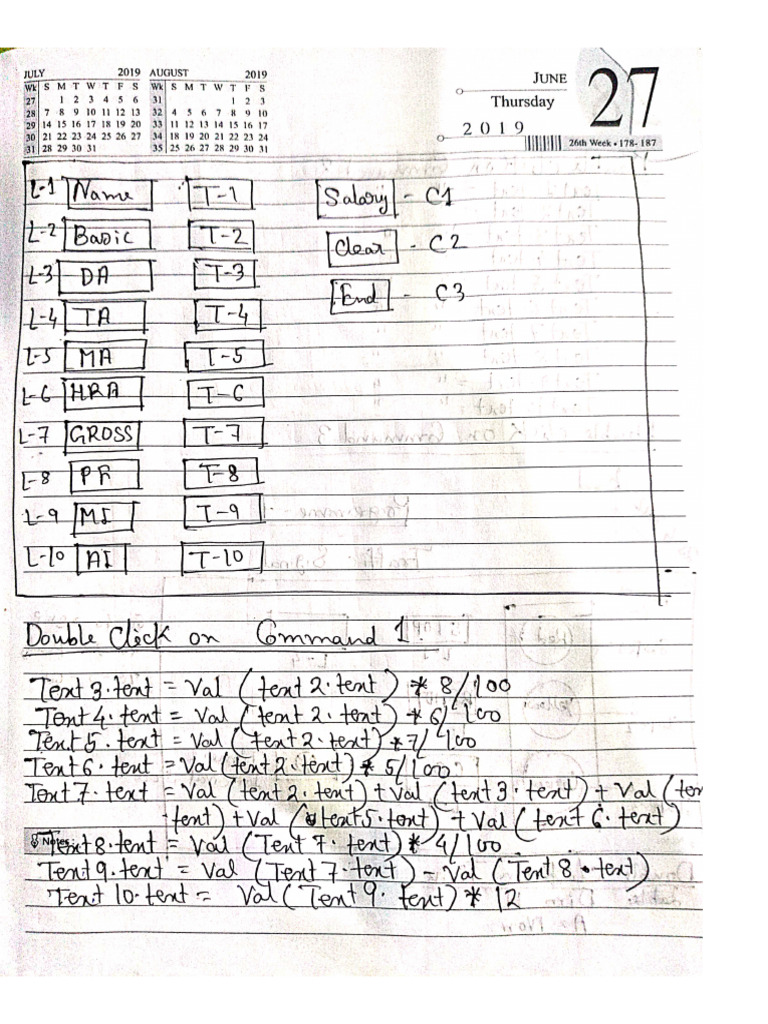 JULY 2019 AUGUST 2019
Wk S M T W T F S Wk S M T W T F S
27 1 2 3 4 5 6 31 1 2 3
28 7 8 9 10 11 12 13 32 4 5 6 7 8 9 10
29 14 15 16 17 18 19 20 33 11 12 13 14 15 16 17
30 21 22 23 24 25 26 27 34 18 19 20 21 22 23 24
31 28 29 30 31 35 25 26 27 28 29 30 31
JUNE 27
Thursday
2019
26th Week • 178- 187
L-1 Name T-1 Salary - C1
L-2 Basic T-2 Clear - C2
L-3 DA T-3 End - C3
L-4 TA T-4
L-5 MA T-5
L-6 HRA T-6
L-7 GROSS T-7
L-8 PF T-8
L-9 MI T-9
L-10 AI T-10
Double Click on Command 1
Text 3.text = Val (text 2.text) * 8/100
Text 4.text = Val (text 2.text) * 6/100
Text 5.text = Val (text 2.text) * 7/100
Text 6.text = Val (text 2.text) * 5/100
Text 7.text = Val (text 2.text) + Val (text 3.text) + Val (
text) + Val (text 5.text) + Val (text 6.text)
Notes
Text 8.text = Val (Text 7.text) * 4/100
Text 9.text = Val (Text 7.text) - Val (Text 8.text)
Text 10.text = Val (Text 9.text) * 12